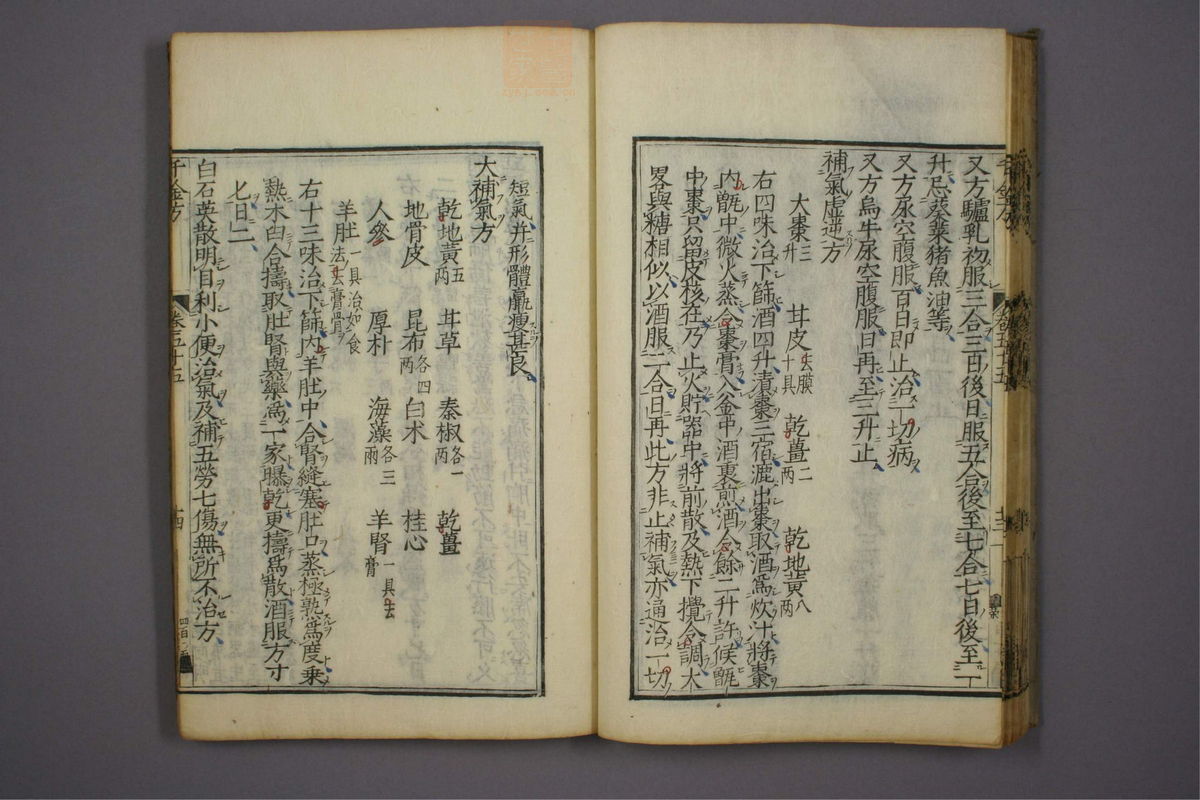 又方驢乳初服三合三百後日服五合後至七合七日後至一
升忌葵菜猪魚油等
又方尿空腹服百日即止治一切病
又方烏牛尿空腹服日再至三升止
補氣虛逆方
大棗三升 甘皮去膜十具 乾薑二兩 乾地黃八兩
右四味治下篩酒四升漬棗三宿漉出棗取酒爲炊汁將棗
內甑中微火蒸令棗膏入釜中酒裏煎酒令餘二升許候甑
中棗只留皮核在乃止火貯器中將前散及熱下攪令調大
畧與糖相似以酒服二合日再此方非止補氣亦通治一切
短氣并形體羸瘦甚良
大補氣方
乾地黃五兩 甘草 秦椒各一兩 乾薑
地骨皮 昆布各四兩 白术 桂心
人參 厚朴 海藻各三兩 羊腎一具去膏
羊肚一具治如食法去膏骨
右十三味治下篩內羊肚中合腎縫塞肚口蒸極熟爲度乘
熱木臼合擣取肚腎與藥爲一家曝乾更擣爲散酒服方寸
匕日二
白石英散明目利小便治氣及補五勞七傷無所不治方
千金方 卷五十五 十四